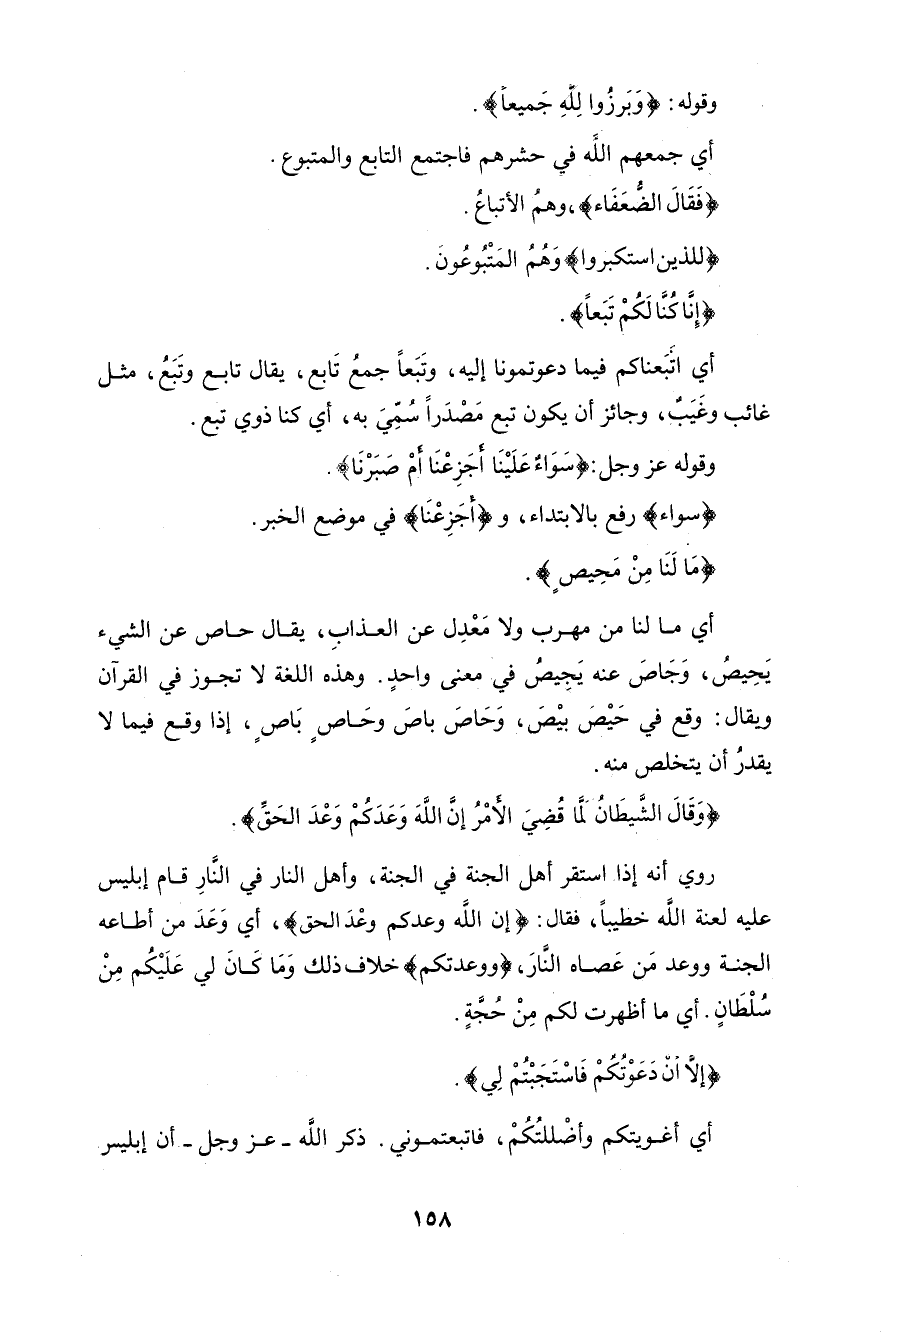 وقوله: ﴿وَبَرزُوا لِلَّهِ جَميعاً﴾.
أي جمعهم اللَّه في حشرهم فاجتمع التابع والمتبوع.
﴿فَقَالَ الضُّعَفَاء﴾، وهمُ الأتباعُ.
﴿للذين استكبروا﴾ وَهُمُ المَتْبُوعُونَ.
﴿إِنَّا كُنَّا لَكُمْ تَبَعاً﴾.
أي اتَّبَعناكم فيما دعوتمونا إليه، وتَبَعاً جمعُ تَابع، يقال تابع وتَبَعُ، مثل
غائب وغَيَبٌ، وجائز أن يكون تبع مَصْدَراً سُمِّيَ به، أي كنا ذوي تبع.
وقوله عز وجل: ﴿سَوَاءٌ عَلَيْنَا أَجَزِعْنَا أَمْ صَبَرْنَا﴾.
﴿سواء﴾ رفع بالابتداء، و ﴿أَجَزِعْنَا﴾ في موضع الخبر.
﴿مَا لَنَا مِنْ مَحِيصٍ﴾.
أي ما لنا من مهرب ولا مَعْدِل عن العذابِ، يقال حاص عن الشيء
يَحِيصُ، وَجَاصَ عنه يَجِيصُ في معنى واحدٍ. وهذه اللغة لا تجوز في القرآن
ويقال: وقع في حَيْصَ بيْصَ، وَحَاصَ باصَ وحَاصٍ بَاصٍ، إذا وقع فيما لا
يقدرُ أن يتخلص منه.
﴿وَقَالَ الشَّيطَانُ لَمَّا قُضِيَ الأَمْرُ إنَّ اللَّهَ وَعَدَكُمْ وَعْدَ الحَقِّ﴾.
روي أنه إذا استقر أهل الجنة في الجنة، وأهل النار في النَّارِ قام إبليس
عليه لعنة اللَّه خطيباً، فقال: ﴿إن اللَّه وعدكم وعْدَ الحق﴾، أي وَعَدَ من أطاعه
الجنة ووعد مَن عَصاه النَّارَ، ﴿ووعدتكم﴾ خلاف ذلك وَمَا كَانَ لي عَلَيْكُم مِنْ
سُلْطَانٍ. أي ما أظهرت لكم مِنْ حُجَّةٍ.
﴿إلاَّ أنْ دَعَوْتُكُمْ فَاسْتَجَبْتُمْ لِي﴾.
أي أغويتكم وأضْللتُكُمْ، فاتبعتموني. ذكر اللَّه ـ عز وجل ـ أن إبليس
١٥٨